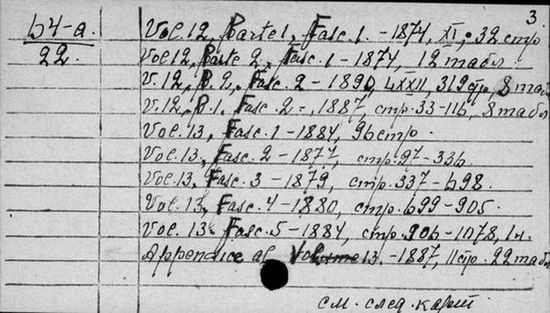 3.
64-a.
22.
Vol. 12, Parte 1, Fasc. 1. - 1874, XI, 32 стр
Vol 12, Parte 2, Fasc. 1 - 1874, 12 табл.
V. 12, P. 2, Fasc. 2 - 1890, LXXII, 319 стр, 8 таб
V. 12, P. 1. Fasc. 2 - 1887, стр. 33-116, 8 табл
Vol. 13, Fasc. 1 - 1884, 96 стр.
Vol. 13, Fasc. 2 - 1877, стр. 97-336
Vol. 13, Fasc. 3 - 1879, стр. 337-698.
Vol. 13, Fasc. 4 - 1880, стр. 699-905.
Vol. 13 Fasc. 5 - 1884, стр. 906-1078, 1н.
Appendice al Volume 13. - 1887, 11 стр. 22 табл
см. след. карт